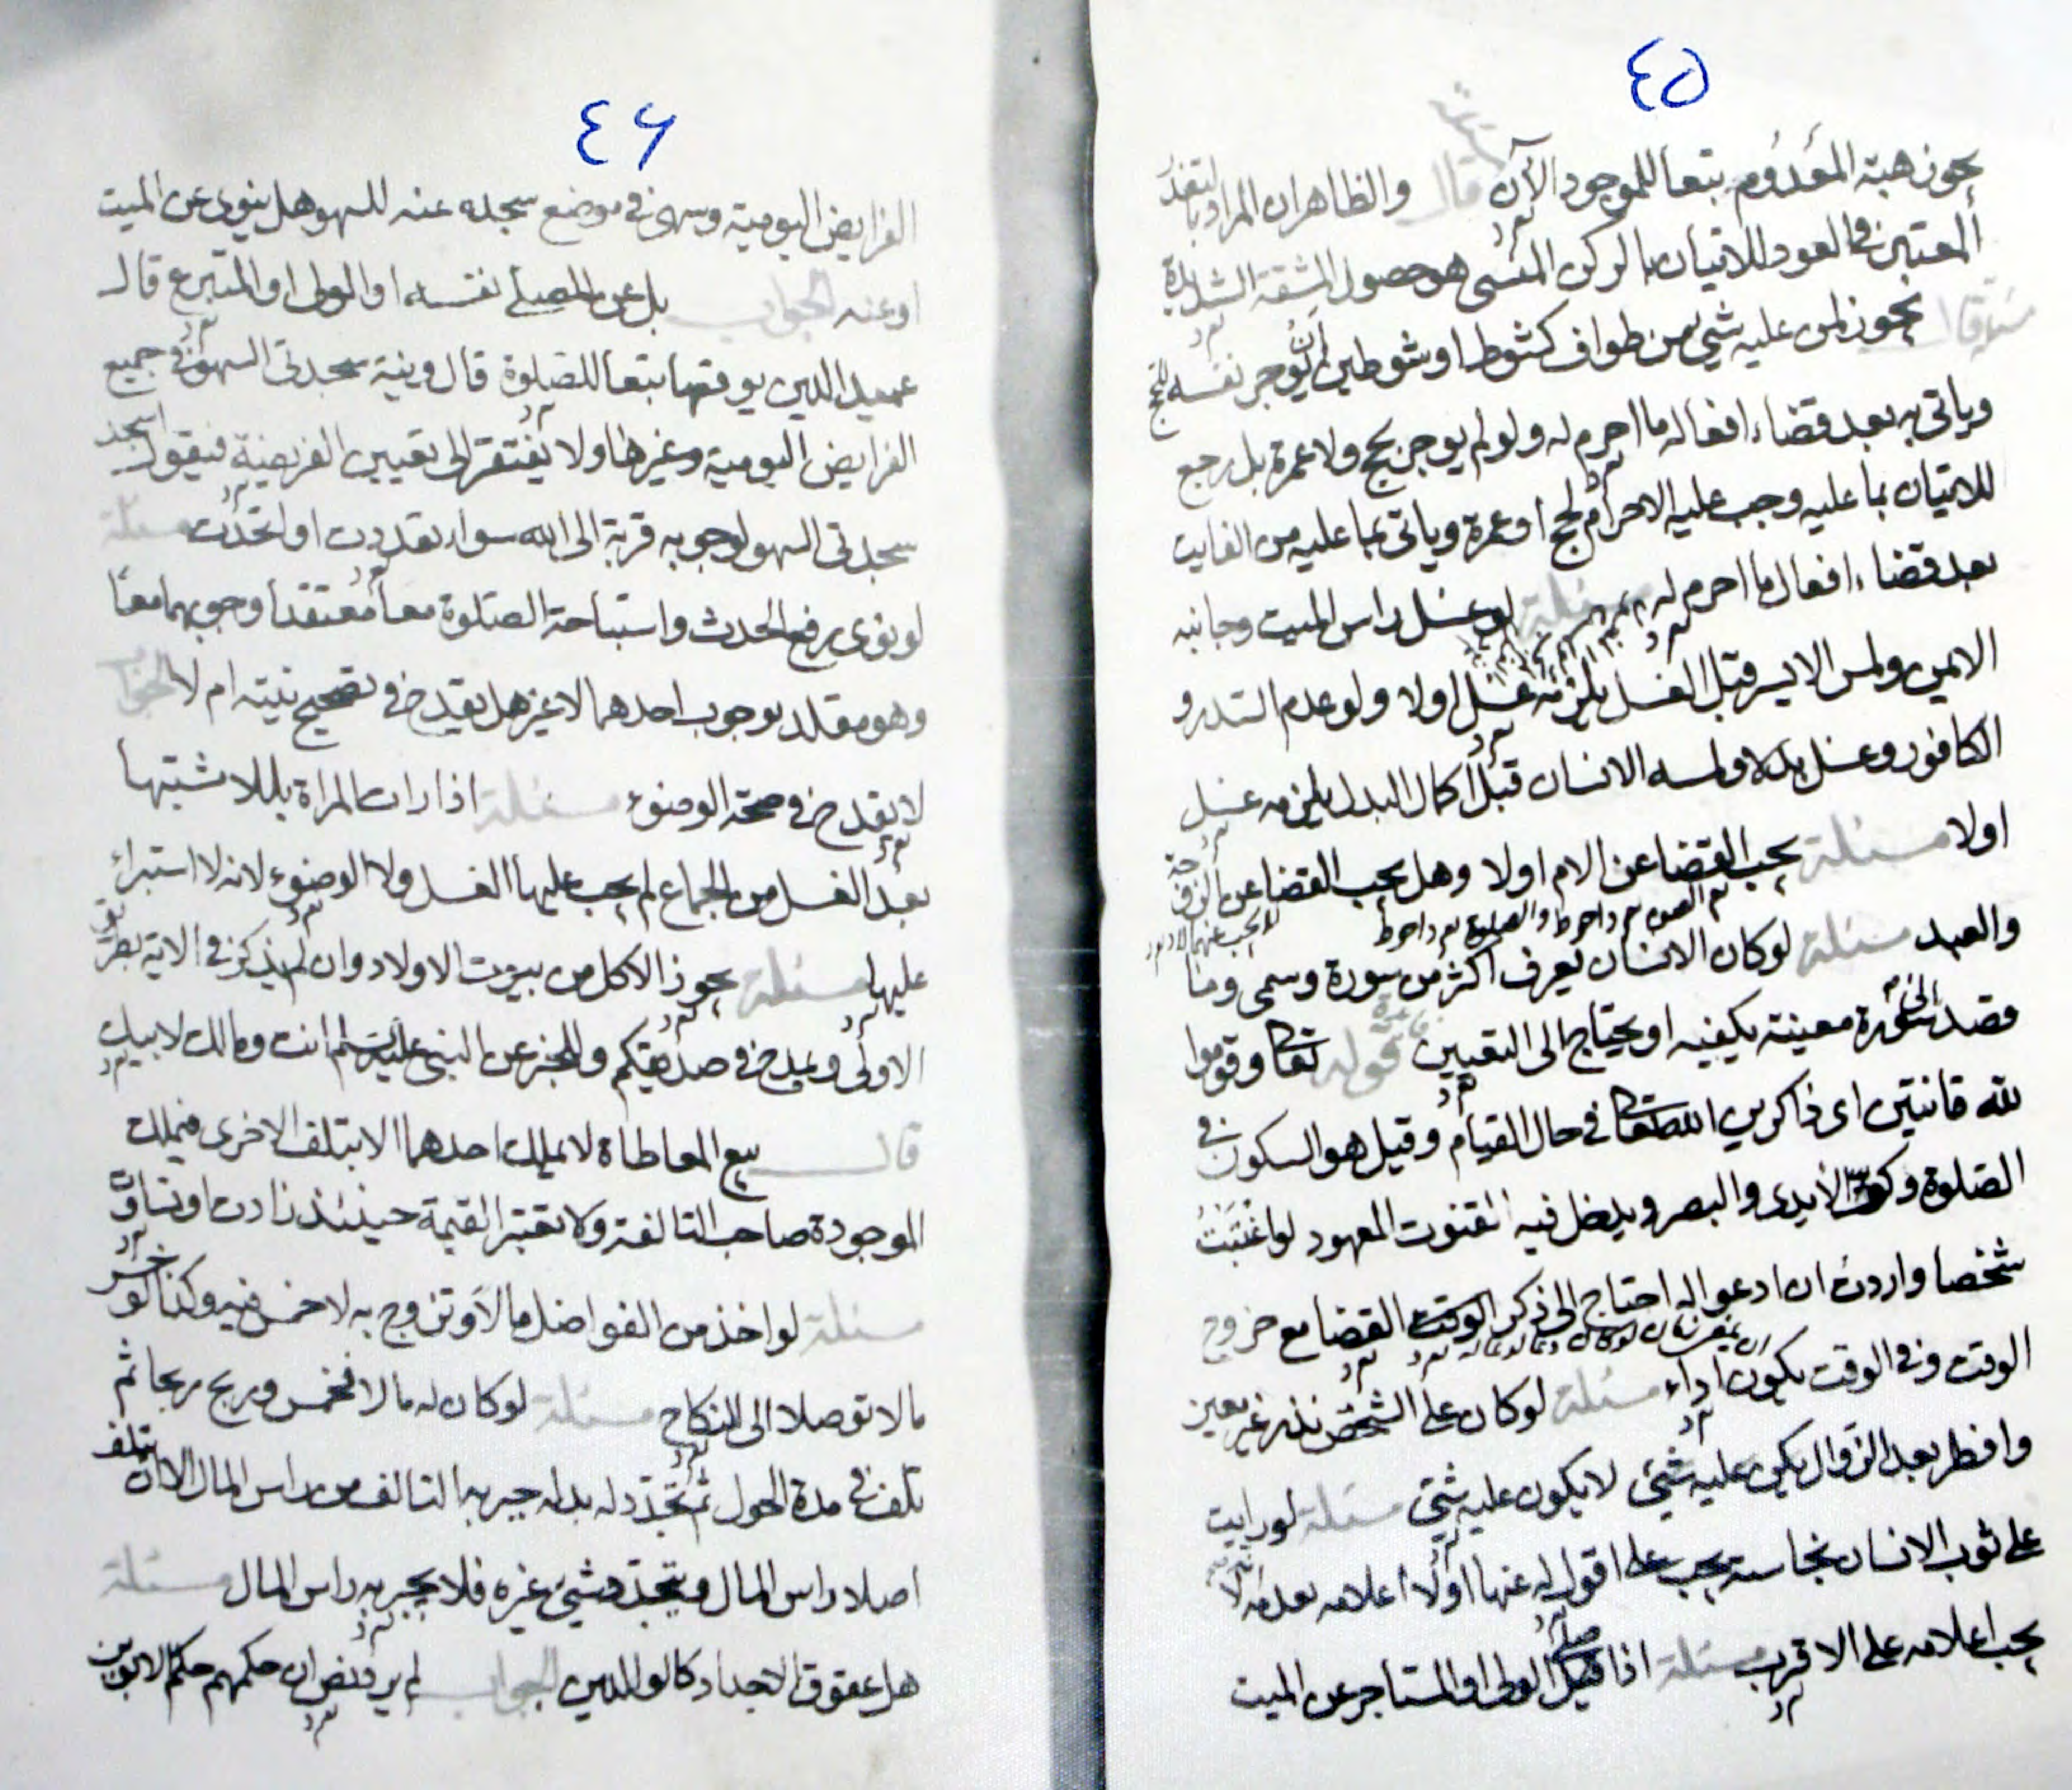 ٤٥
يجوز هبة المعدوم تبعا للموجود الآن قال والظاهر ان المراد بالتعذر
المعتبر في العود للاتيان بالركن المنسى هو حصول المشقة الشديدة
يجوز لمن عليه شيء من طواف كشوط او شوطين ان يوجر نفسه للحج
وياتى به بعد قضاء افعاله ما احرم له ولو لم يوجر بحج ولا عمرة بل رجع
للاتيان بما عليه وجب عليه الاحرام لحج او عمرة وياتى بما عليه من الفايت
بعد قضاء افعال ما احرم له مسئلة لو غسل راس الميت وجانبه
الايمن ولمس الايسر قبل الغسل يلزمه غسل اولا ولو عدم السدر و
الكافور وغسل بدله ولمسه الانسان قبل اكمال البدل يلزمه غسل
اولا مسئلة يجب القضا عن الام اولا وهل يجب القضا عن الزوجة
والعبد مسئلة لو كان الانسان يعرف اكثر من سورة وسمى وما
قصد الى سورة معينة يكفيه او يحتاج الى التعيين قوله تعالى وقوموا
لله قانتين اى ذاكرين الله تعالى في حال القيام وقيل هو السكون في
الصلوة وكف الأيدى والبصر ويدخل فيه القنوت المعهود لو اغتبت
شخصا واردت ان ادعو له احتاج الى ذكر الوقت القضا مع خروج
الوقت وفى الوقت يكون اداء مسئلة لو كان على الشخص نذر غير معين
وافطر بعد الزوال يكن عليه شىء لا يكون عليه شىء مسئلة لو رايت
على ثوب الانسان نجاسة يجب على اقول له عنها اولا اعلامه بعدمه لا
يجب اعلامه على الاقرب مسئلة اذا صلى الولى او المستاجر عن الميت
٤٦
الفرايض اليومية وسهى في موضع سجده عنه للسهو هل ينوى عن الميت
او عنه الجواب بل عن المصلى نفسه او الولى او المتبرع قال
عميد الدين يوقعها تبعا للصلوة قال ونية سجدتى السهو في جميع
الفرايض اليومية وغيرها ولا يفتقر الى تعيين الفريضة فيقول اسجد
سجدتى السهو لوجوبه قربة الى الله سواء تعددت او اتحدت مسئلة
لو نوى رفع الحدث واستباحة الصلوة معا معتقدا وجوبهما معا
وهو مقلد بوجوب احدهما لا غير هل يقدح في تصحيح نيته ام لا الجواب
لا يقدح في صحة الوضوء مسئلة اذا رات المراة بللا مشتبها
بعد الغسل من الجماع لم يجب عليها الغسل ولا الوضوء لانه لا استبراء
عليها مسئلة يجوز الاكل من بيوت الاولاد وان لم يذكر في الاية بطريق
الاولى ويدخل في صديقكم والخبر عن النبى عليه السلم انت ومالك لابيك
قال بيع المعاطاة لا يملك احدهما الا بتلف الاخرى فيملك
الموجودة صاحب التالفة ولا تعتبر القيمة حينئذ زادت او تساوت
مسئلة لو اخذ من الفواضل مالا وتزوج به لا خمس فيه وكذا لو خسر
مالا توصلا الى النكاح مسئلة لو كان له مال لا فخمس وربح ربحا ثم
تلف في مدة الحول ثم تجدد له بدله جبر به التالف من راس المال الا ان يتلف
اصلا راس المال ويتجدد شىء غيره فلا يجبر به راس المال مسئلة
هل عقوق الاجداد كالوالدين الجواب لم ير فنص ان حكمهم حكم الابوين